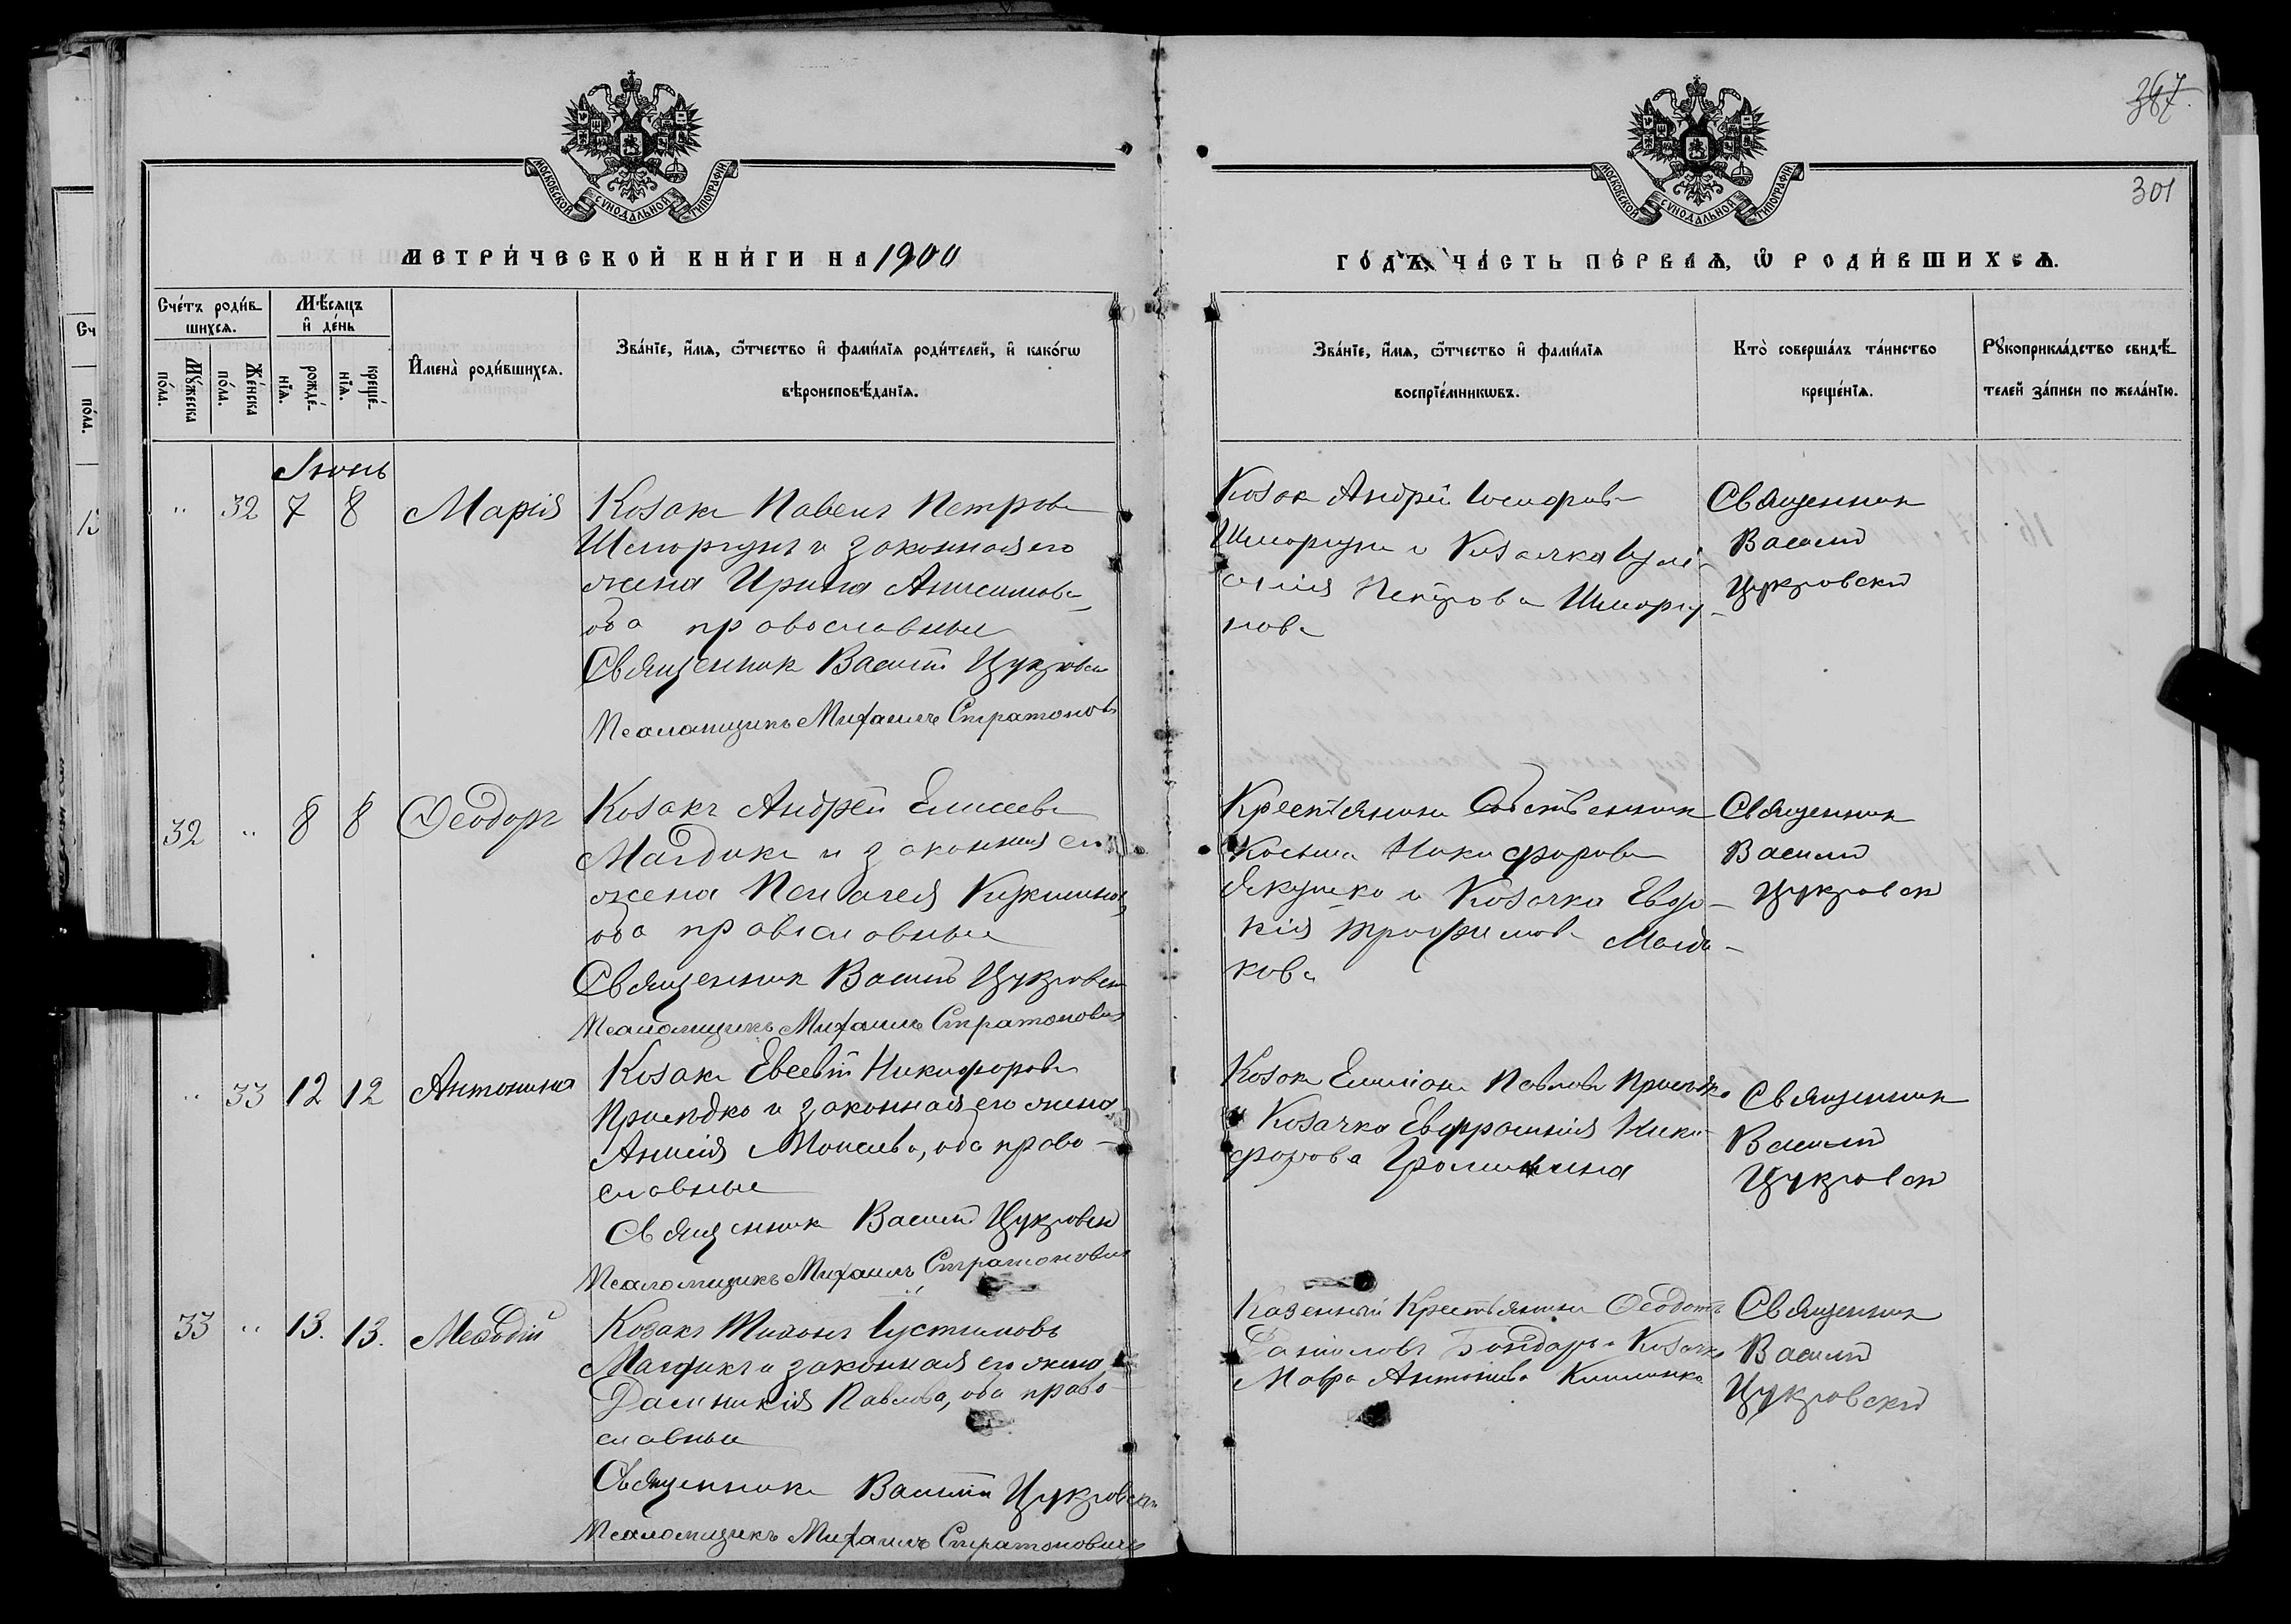 367.
301
МОСКОВСКОЙ СѴНОДАЛЬНОЙ ТИПОГРАФІИ
МОСКОВСКОЙ СѴНОДАЛЬНОЙ ТИПОГРАФІИ
МЕТРИ́ЧЕСКОЙ КНИ́ГИ НА 1900
ГО́ДЪ, ЧА́СТЬ ПЕ́РВАѦ, Ѡ РОДИ́ВШИХСѦ.
Сче́тъ роди́в-
шихсѧ.
Мѣ́сѧцъ
и҆ де́нь
Му́жеска
по́ла.
Же́нска
по́ла.
рожде́-
нїѧ.
креще́-
нїѧ.
И҆мена̀ роди́вшихсѧ.
Зва́нїе, и҆́мѧ, ѻ҆́тчество и҆ фами́лїѧ роди́телей, и҆ како́гѡ
вѣроисповѣ́данїѧ.
Зва́нїе, и҆́мѧ, ѻ҆́тчество и҆ фами́лїѧ
воспрїе́мникѡвъ.
Кто̀ соверша́лъ та́инство
креще́нїѧ.
Рꙋкоприкла́дство свидѣ́-
телей за́писи по жела́нїю.
Сч
пола.
Іюнь
" 32 7 8 Марія
Козакъ Павелъ Петровъ
Шморгунъ и законная его
жена Ирина Анисимова,
оба православные
Священникъ Василій Цукровскій
Псаломщикъ Михаилъ Стратоновъ
Козакъ Андрей
Шморгунъ и Козачка Іулі-
анія Петрова Шморгу-
нова
Священникъ
Василій
Цукровскій
32 " 8 8 Ѳеодоръ
Козакъ Андрей Елисеевъ
Малдикъ и законная его
жена Пелагея
оба православные
Священникъ Василій Цукровскій
Псаломщикъ Михаилъ Стратоновичъ
Крестьянинъ Собственникъ
Косьма Никифоровъ
Якушко и Козачка Евдо-
кія Трофимова Малди-
кова
Священникъ
Василій
Цукровскій
" 33 12 12 Антонина
Козакъ Евсевій Никифоровъ
Присядко и законная его жена
Анисія Моисеева, оба право-
славные
Священникъ Василій Цукровскій
Псаломщикъ Михаилъ Стратоновичъ
Козакъ Емиліанъ Павловъ Присядко
и Козачка Евфросинія Ники-
форова
Священникъ
Василій
Цукровскій
33 " 13. 13. Меѳодій
Козакъ Тихонъ Іустиновъ
Малдикъ и законная его жена
Домникія Павлова, оба право-
славные
Священникъ Василій Цукровскій
Псаломщикъ Михаилъ Стратоновичъ
Казенный Крестьянинъ Ѳеодотъ
Даниловъ Бондарь и Козачка
Мавра Антоніева
Священникъ
Василій
Цукровскій